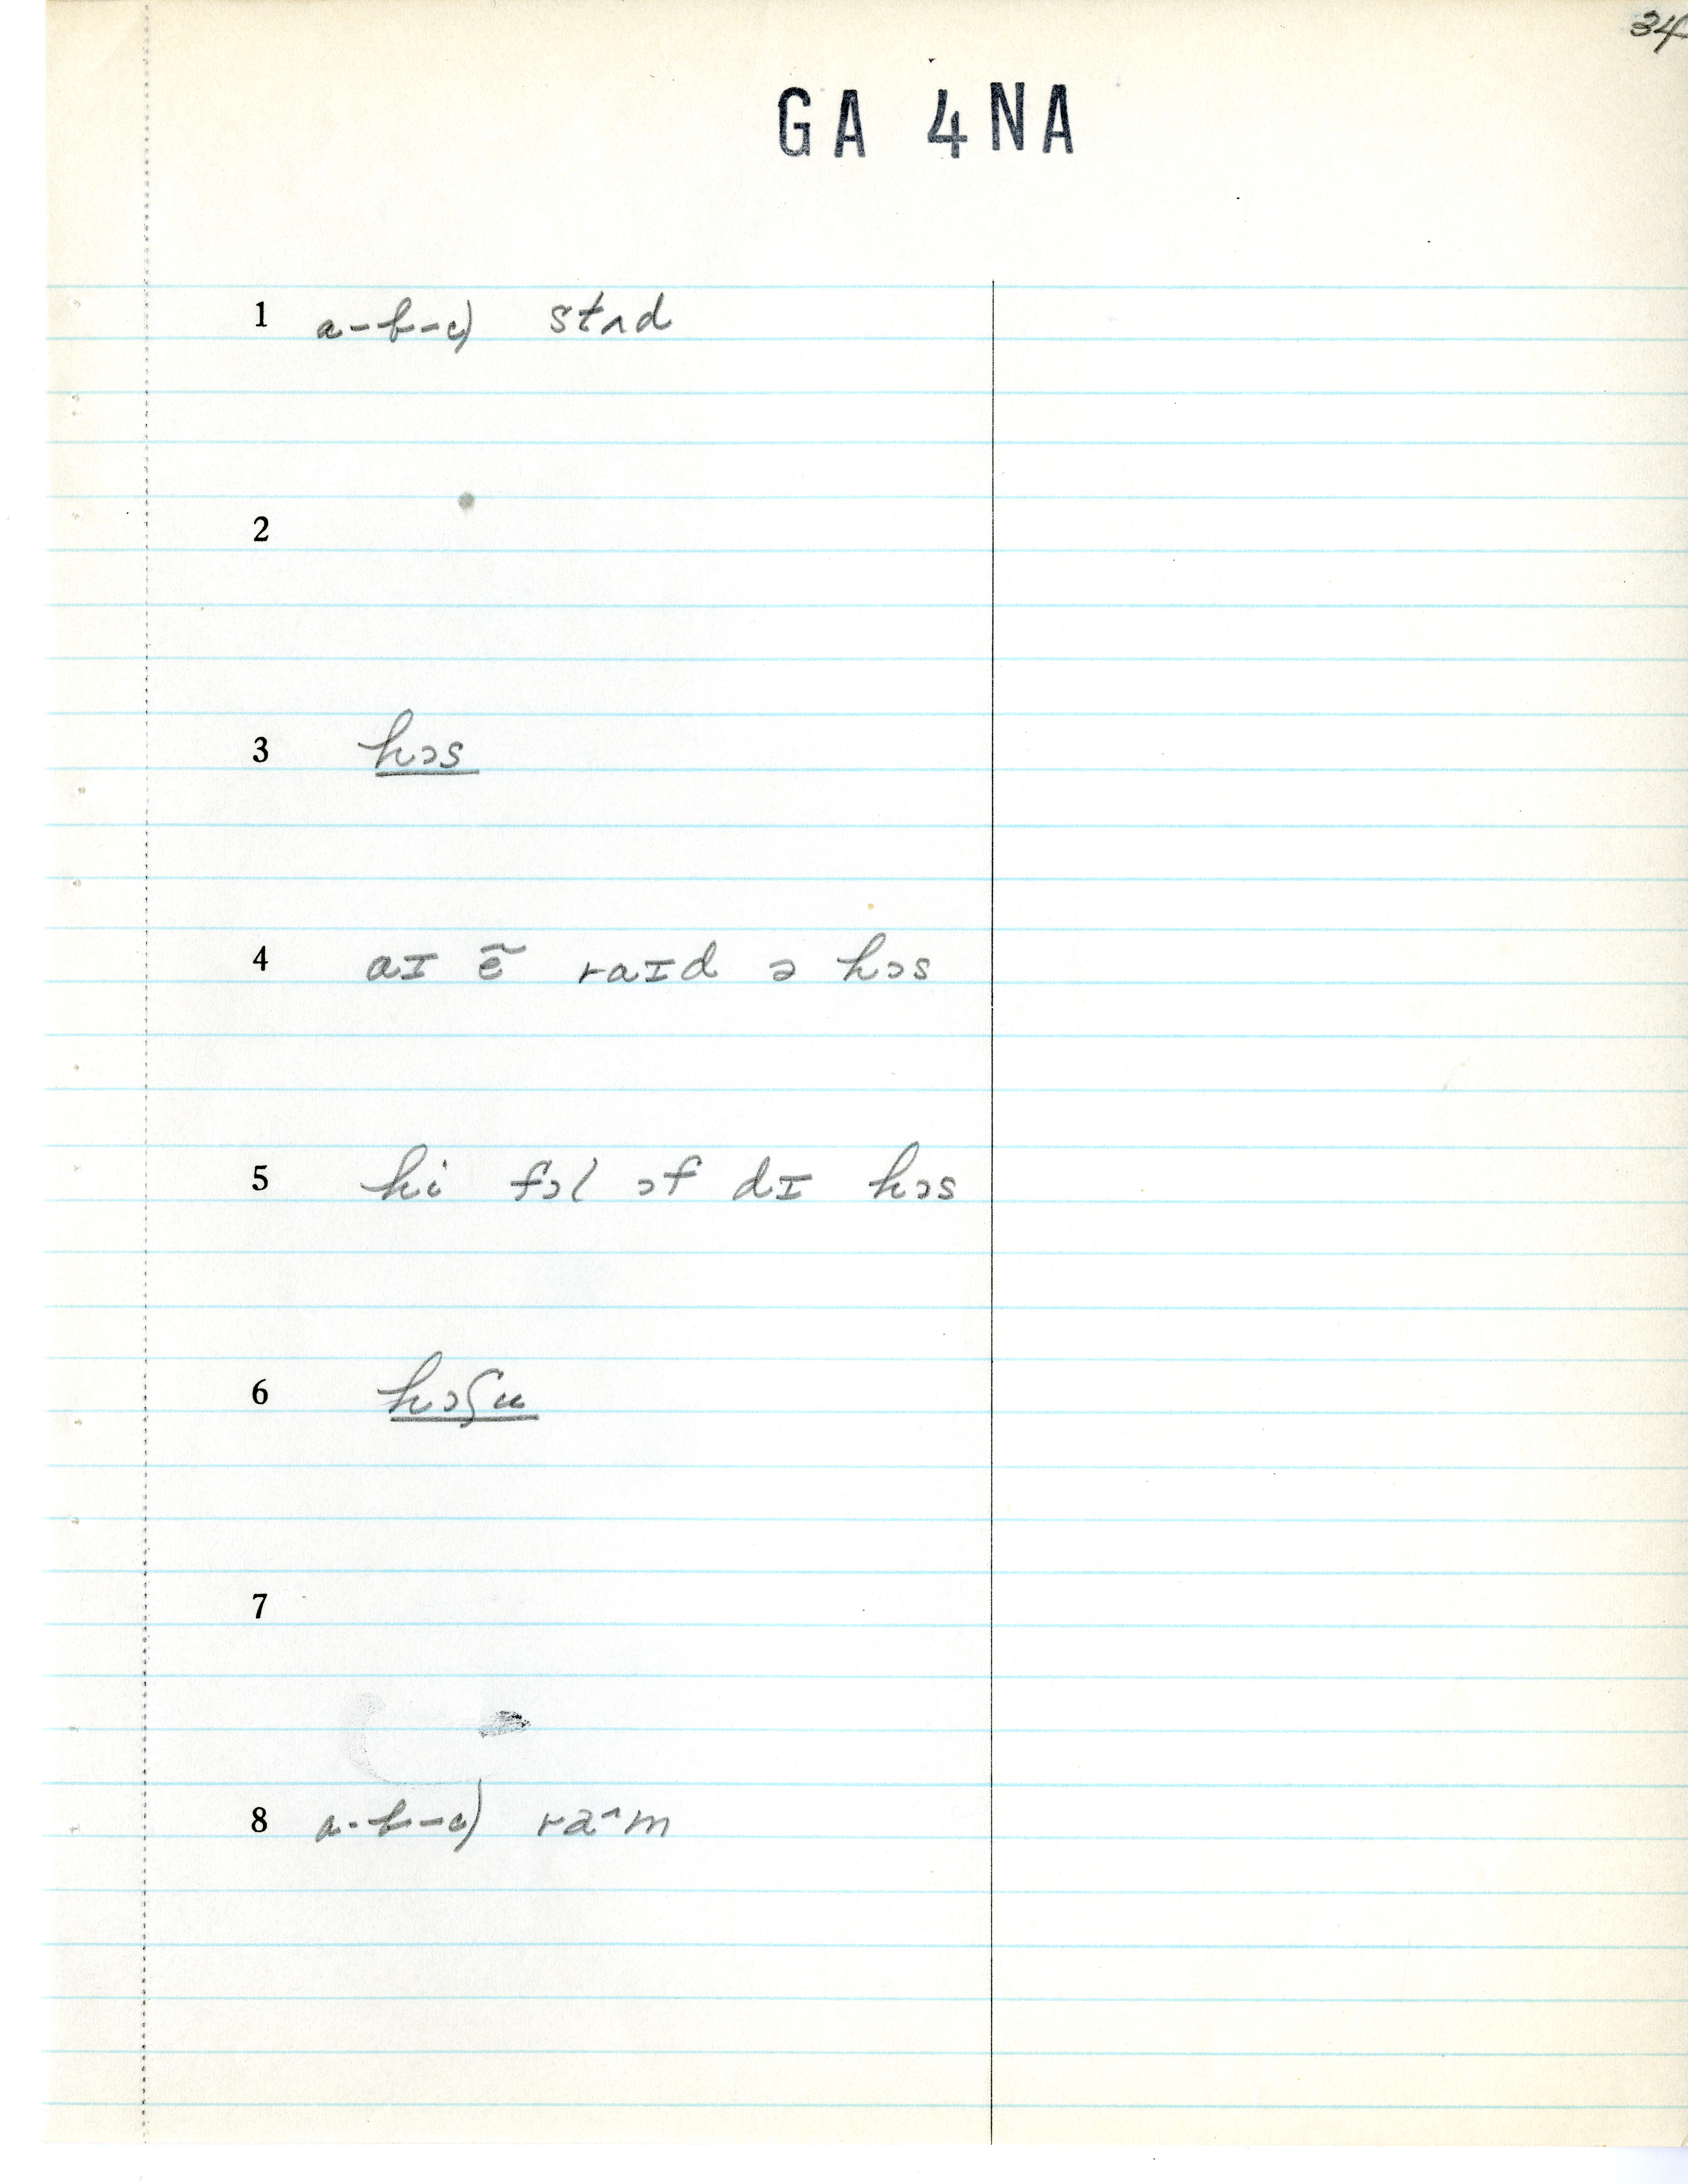 34
GA 4NA
1 a-b-c) stʌd
2
3 hɔs
4 aɪ ẽ raɪd ə hɔs
5 hi fɔl ɔf dɪ hɔs
6 hɔʃu
7
8 a-b-c) ra^m